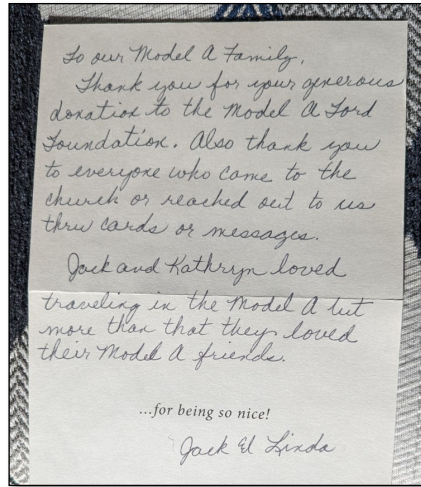 To our Model A Family,
Thank you for your generous
donation to the Model A Ford
Foundation. Also thank you
to everyone who came to the
church or reached out to us
thru cards or messages.
Jack and Kathryn loved
traveling in the Model A but
more than that they loved
their Model A friends.
...for being so nice!
Jack El Linda